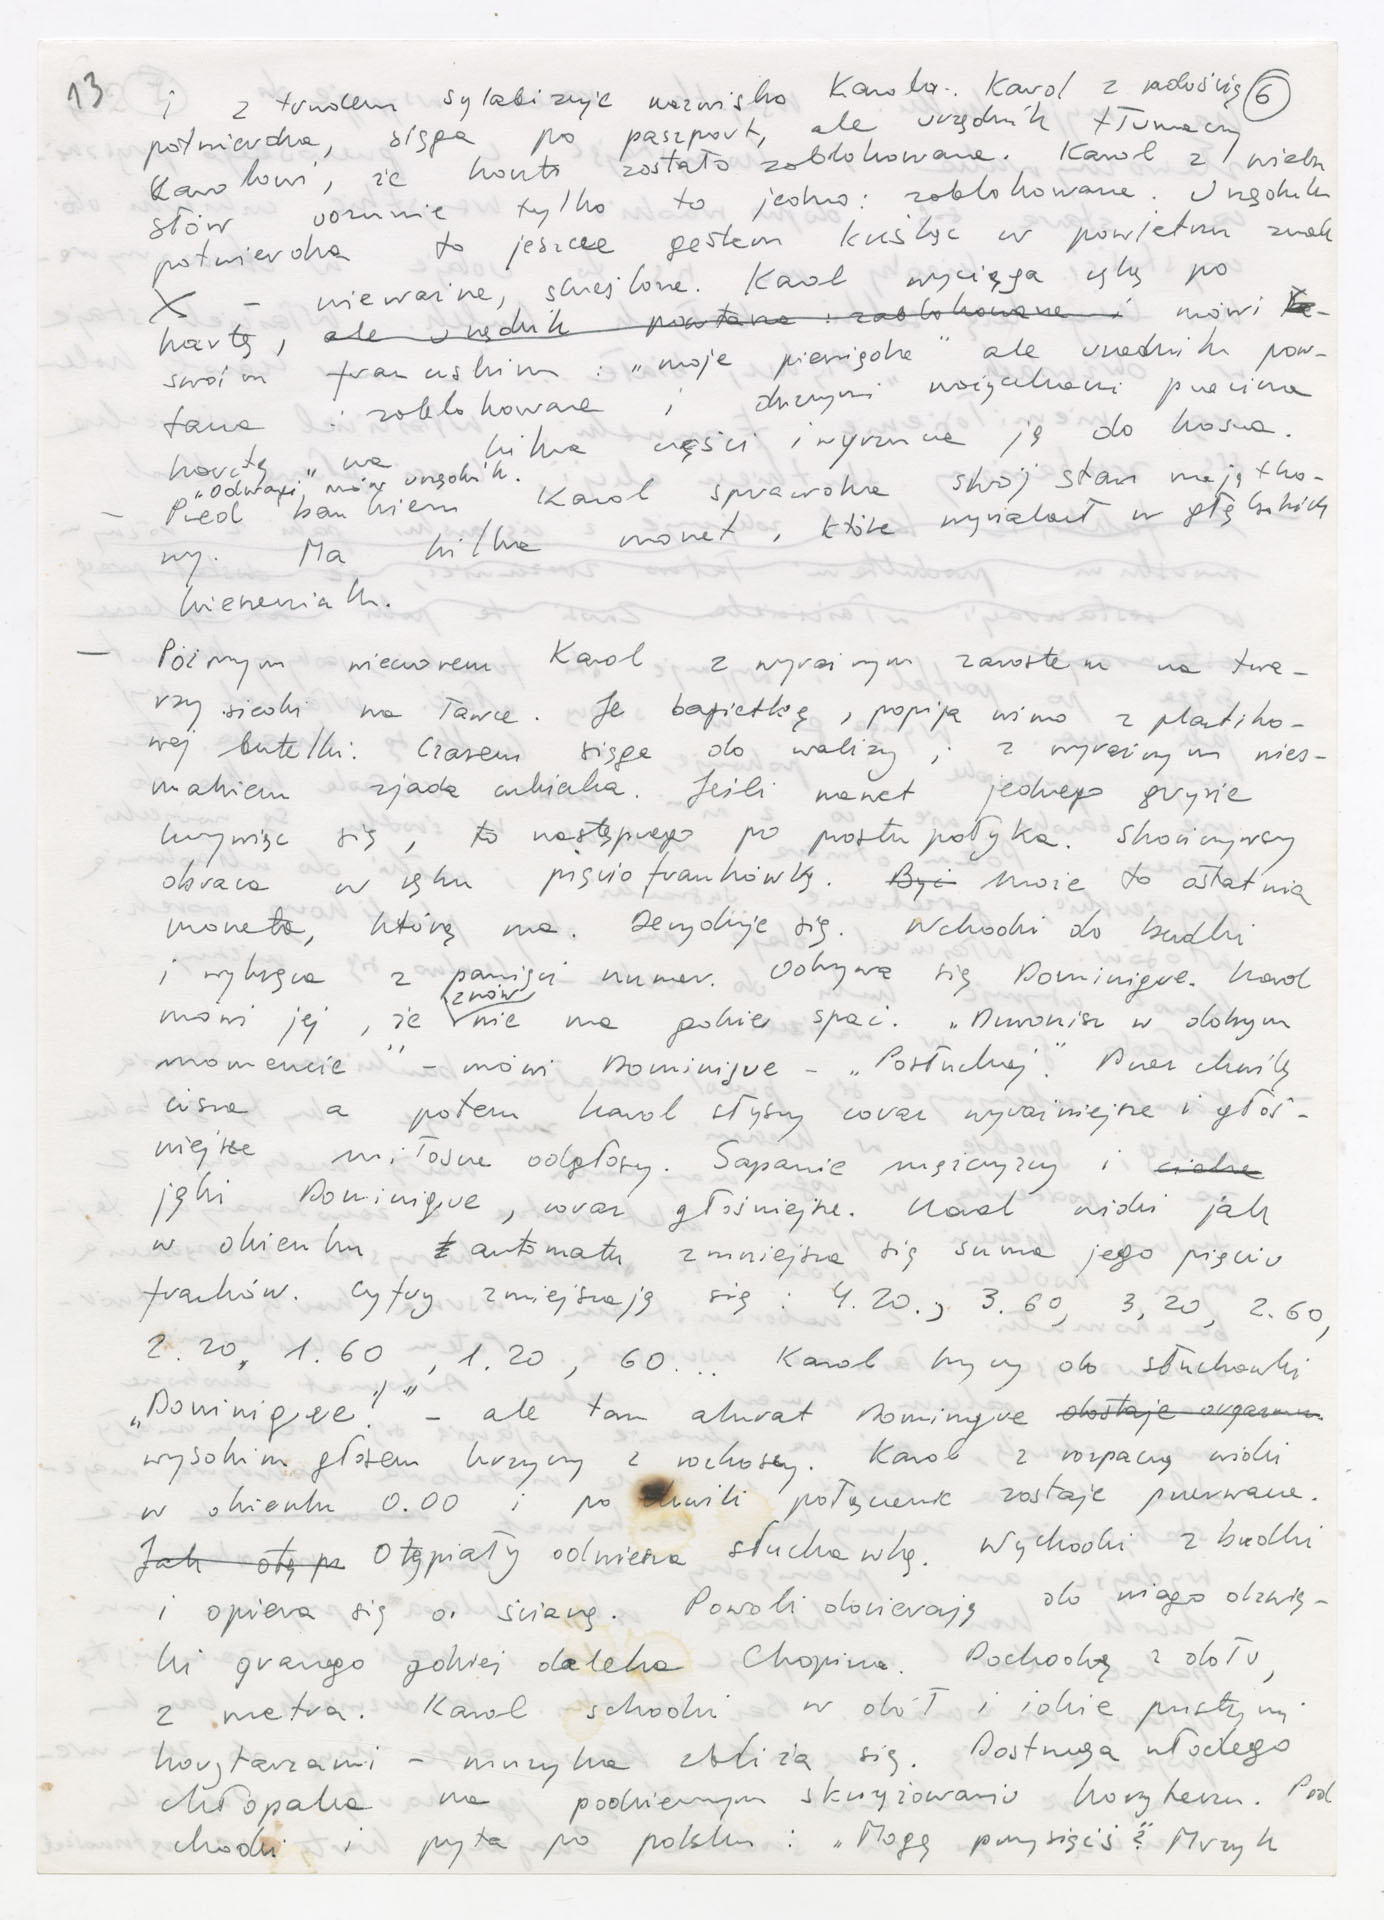 13
i z trudem sylabizuje nazwisko Karola. Karol z radością 6
potwierdza, sięga po paszport, ale urzędnik tłumaczy
Karolowi, że konto zostało zablokowane. Karol z wielu
słów rozumie tylko to jedno: zablokowane. Urzędnik
potwierdza to jeszcze gestem kreśląc w powietrzu znak
X – nieważne, skreślone. Karol wyciąga rękę po
kartę, ale urzędnik powtarza : zablokowane i mówi
swoim francuskim : „moje pieniądze" ale urzędnik pow-
tarza : zablokowane i dużymi nożyczkami przecina
kartę na kilka części i wyrzuca ją do kosza.
„Odmawia", mówi urzędnik.
– Przed bankiem Karol sprawdza swój stan majątko-
wy. Ma kilka monet, które wynalazł w głębokich
kieszeniach.
– Późnym wieczorem Karol z wyraźnym zarostem na twa-
rzy siedzi na ławce. Je bagietkę, popija wino z plastiko-
wej butelki. Czasem sięga do walizy i z wyraźnym nies-
makiem zjada cukierka. Jeśli nawet jednego gryzie
krzywiąc się, to następnego po prostu połyka. Skończywszy
obraca w ręku pięciofrankówkę. Być Może to ostatnia
moneta, którą ma. Decyduje się. Wchodzi do budki
i wykręca z pamięci numer. Odzywa się Dominique. Karol
znów
mówi jej, że nie ma gdzie spać. „Dzwonisz w dobrym
momencie" – mówi Dominique – „Posłuchaj". Przez chwilę
cisza a potem Karol słyszy coraz wyraźniejsze i głoś-
niejsze miłosne odgłosy. Sapanie mężczyzny i ciche
jęki Dominique, coraz głośniejsze. Karol widzi jak
w okienku automatu zmniejsza się suma jego pięciu
franków. Cyfry zmiejszają się : 4.20., 3.60, 3,20, 2.60,
2.20, 1.60, 1.20, 60... Karol krzyczy do słuchawki
„Dominique!" – ale tam akurat Dominique dostaje orgazmu.
wysokim głosem krzyczy z rozkoszy. Karol z rozpaczą widzi
w okienku 0.00 i po chwili połączenie zostaje przerwane.
Jak otę pi Otępiały odwiesza słuchawkę. Wychodzi z budki
i opiera się o ścianę. Powoli docierają do niego dźwię-
ki granego gdzieś daleka Chopina. Dochodzą z dołu,
z metra. Karol schodzi w dół i idzie pustymi
korytarzami – muzyka zbliża się. Dostrzega młodego
chłopaka na podziemnym skrzyżowaniu korytarzu. Pod
chodzi i pyta po polsku : „Mogę przysiąść?" Muzyk